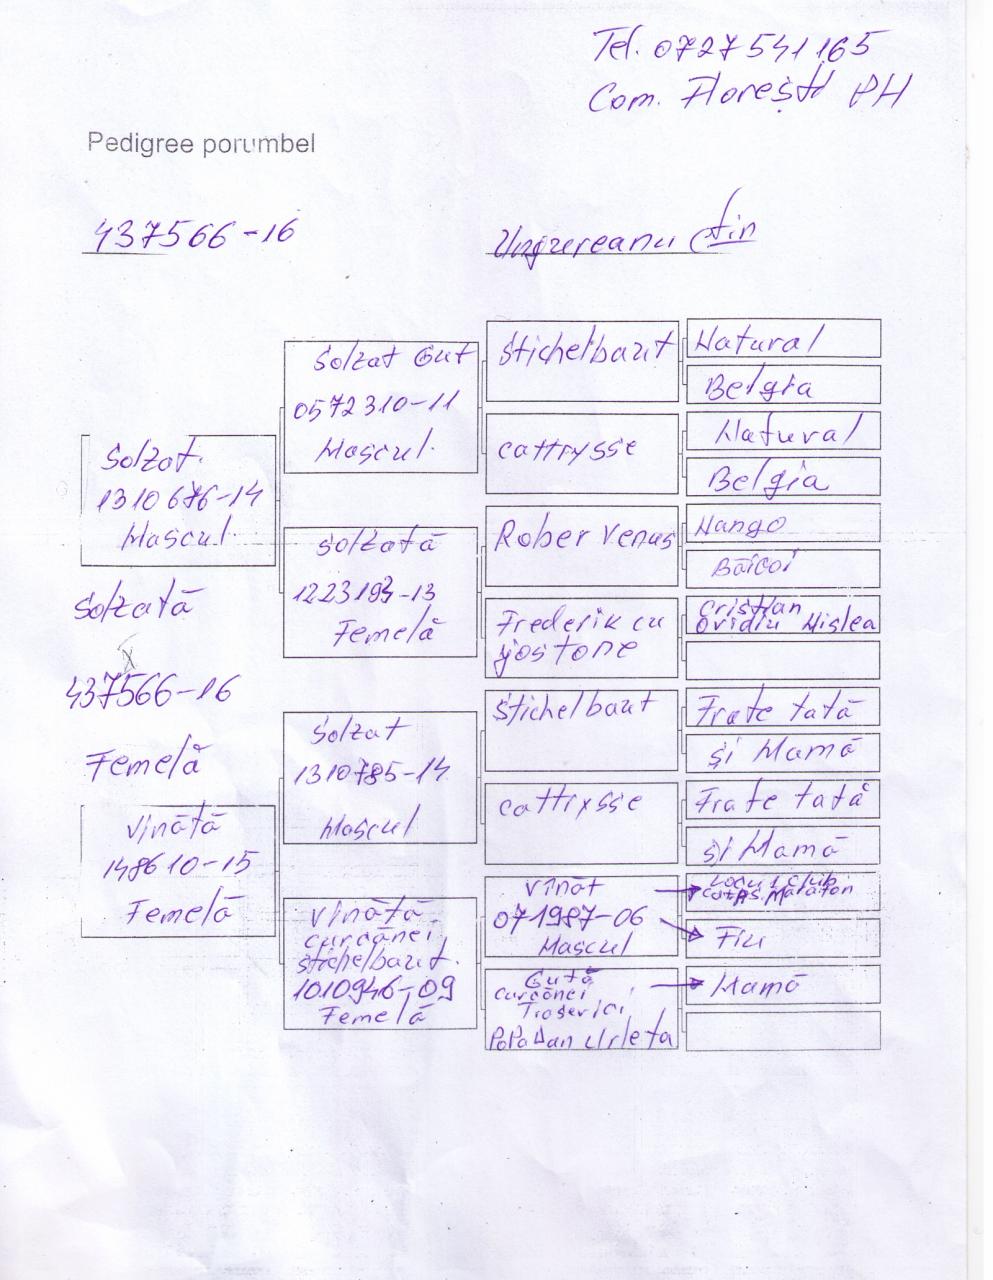 Tel. 0727541165
Com. Florești PH
Pedigree porumbel
437566-16
Ungureanu Ctin
Solzat
1310676-14
Mascul
Solzată
437566-16
Femelă
Vînătă
148610-15
Femelă
Solzat Gut
0572310-11
Mascul
Solzată
1223193-13
Femelă
Solzat
1310785-14
Mascul
Vînătă
curcănei
Stichelbaut
1010946-09
Femelă
Stichelbaut
cattrysse
Rober Venus
Frederik cu
yostone
Stichelbaut
cattrysse
Vînăt
071987-06
Mascul
Gută
curcănei
PoPa Dan Urleta
Natural
Belgia
Natural
Belgia
Nango
Băicoi
Cristian
Ovidiu Mislea
Frate tată
și Mamă
Frate tată
și Mamă
Locu 1 Club
Maraton
Fiu
Mamă